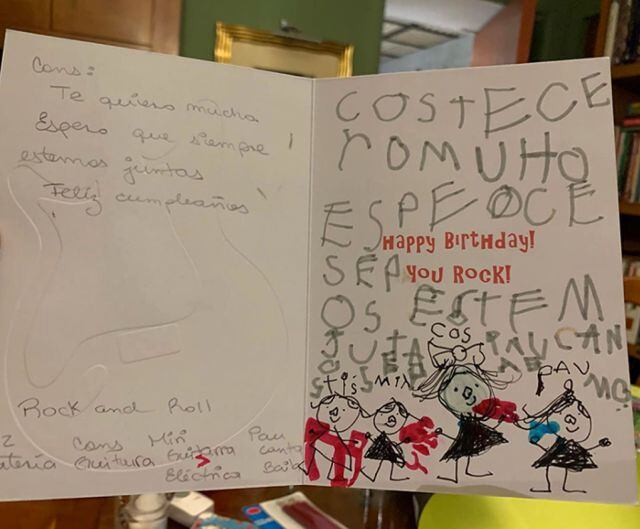 Cons:
Te quiero mucho
Espero que siempre
estemos juntas
Feliz cumpleaños
Rock and Roll
Cons Miri Pau
Guitarra Guitarra canta
Eléctrica Baila
COSTECE
ROMUHO
ESPEOCE
HAPPY BIRTHDAY!
SEP
YOU ROCK!
OS ESTEM
JUTA PAUCAN
COS
PAU
MIN